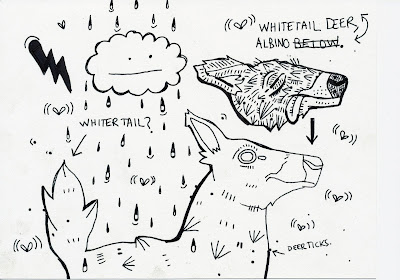 WHITETAIL DEER,
ALBINO BELOW.
WHITER TAIL?
DEER TICKS.